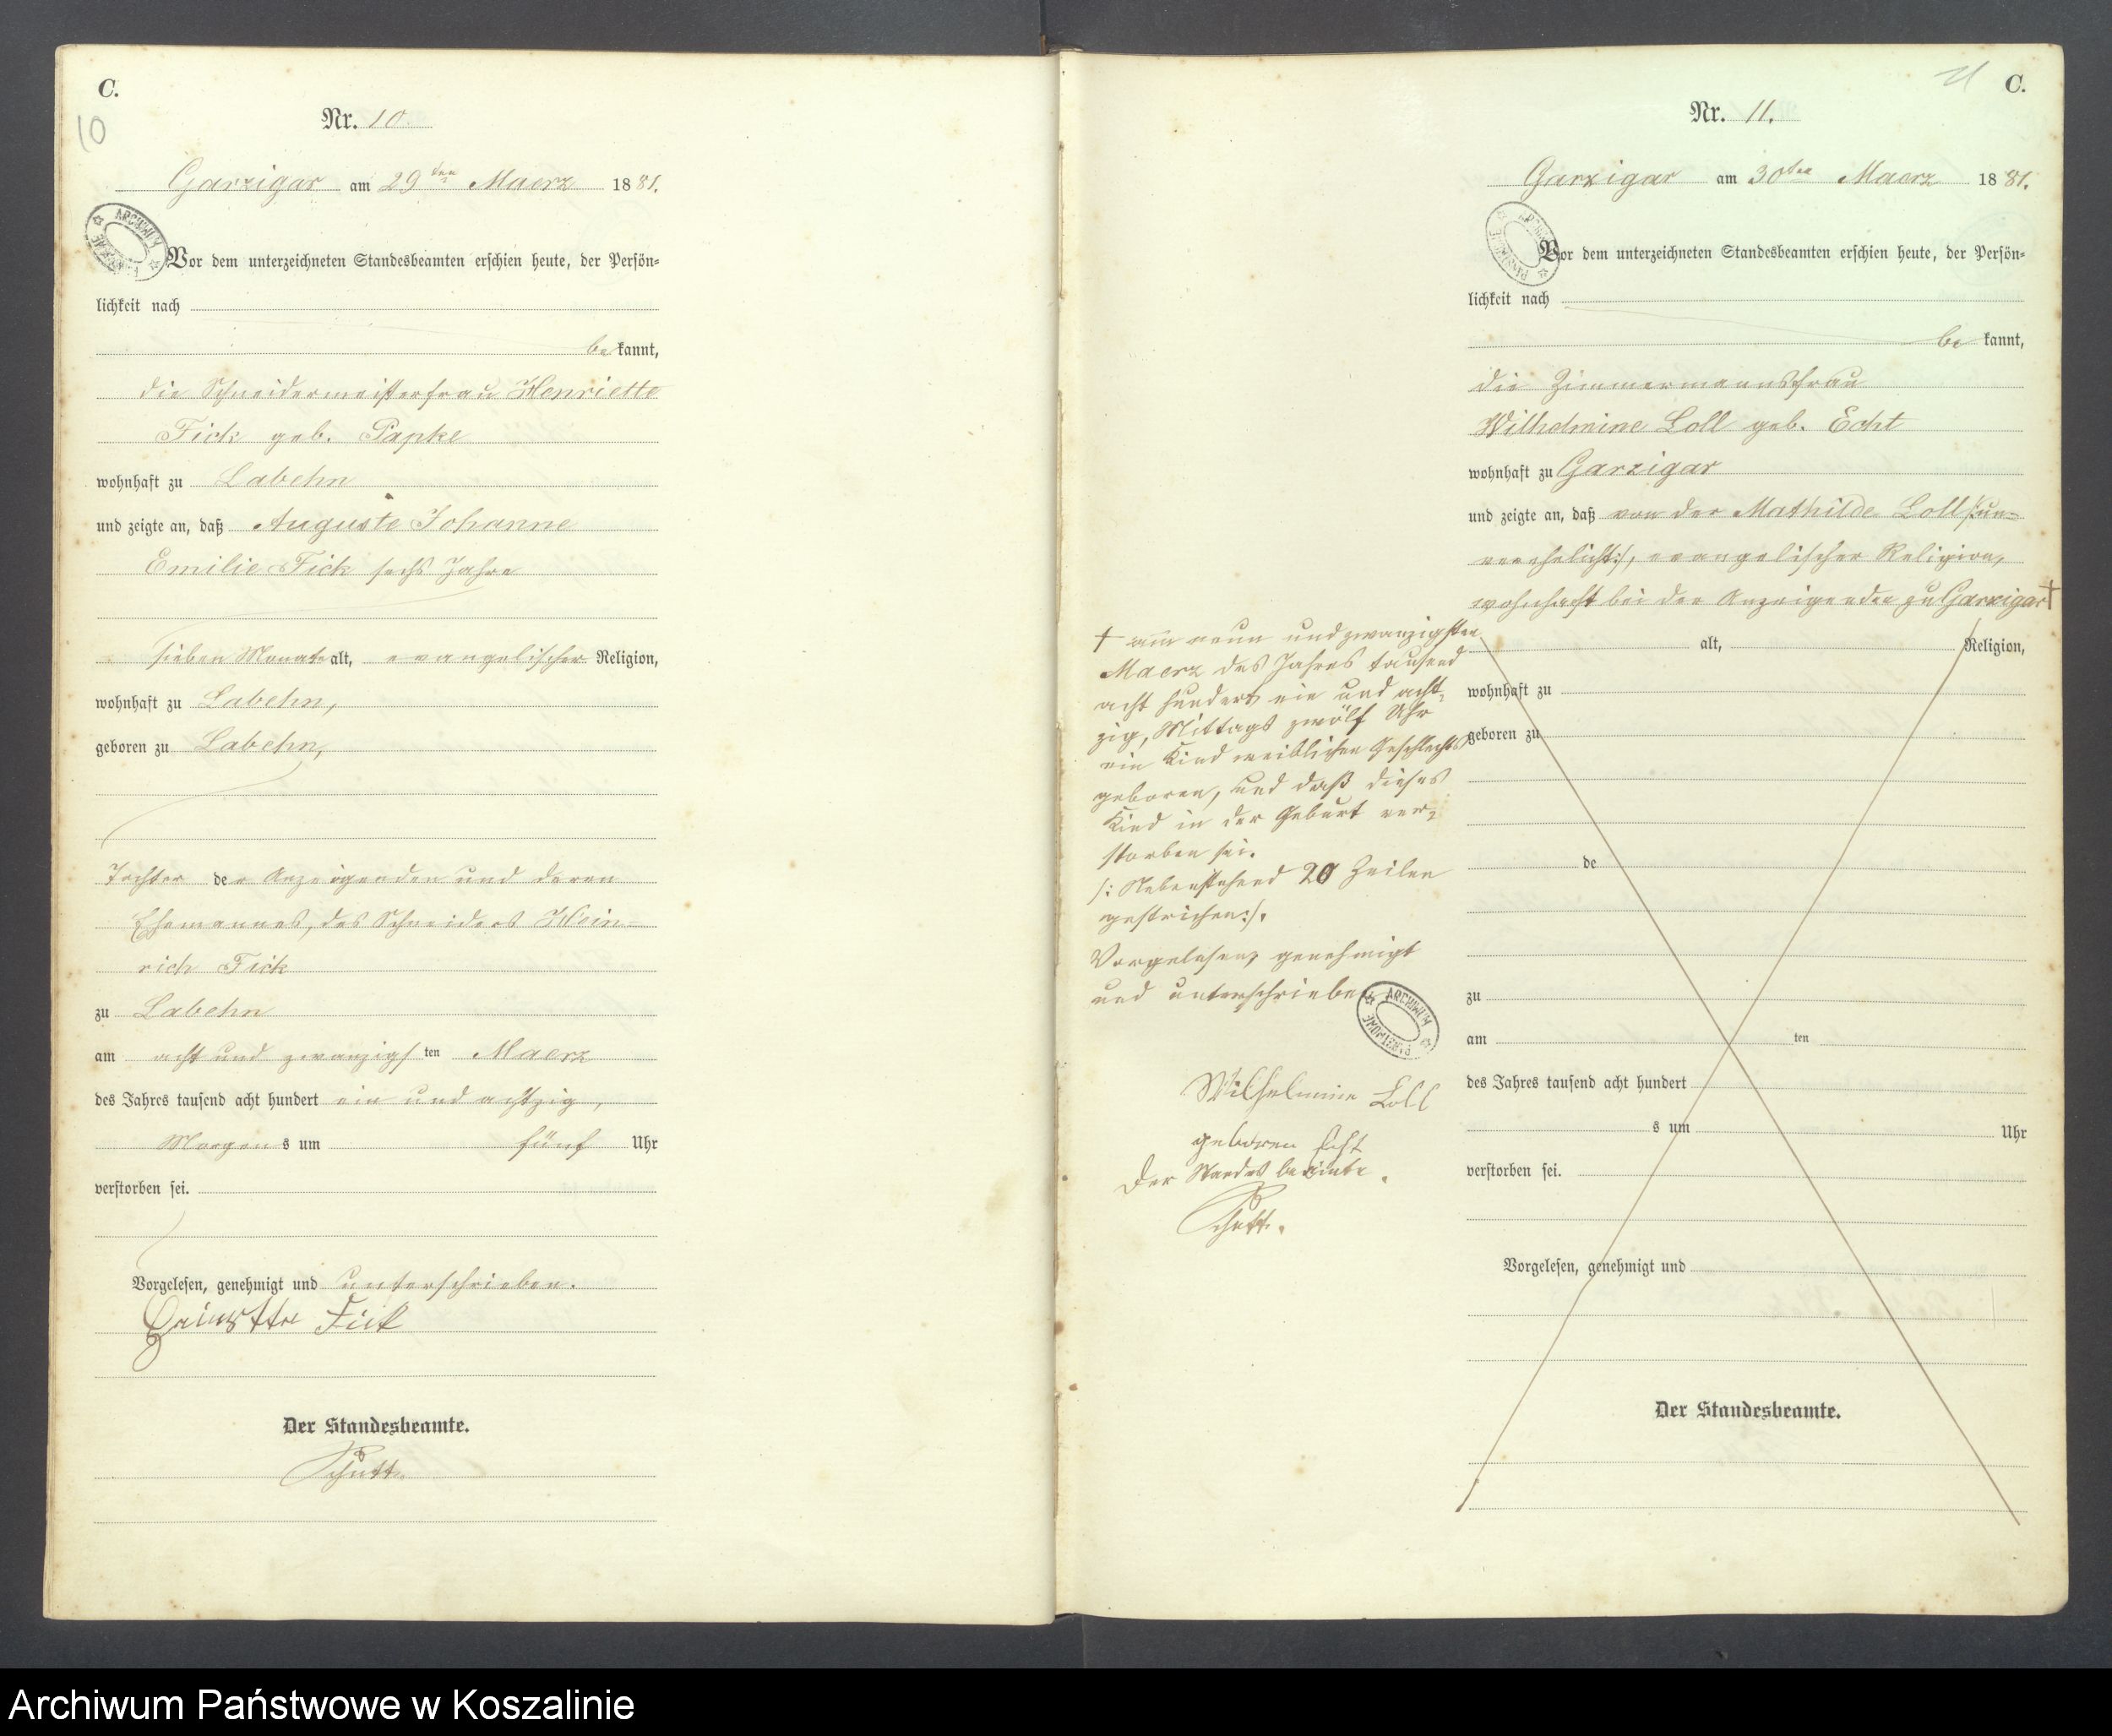 C.
10
Nr. 10
Garzigar am 29ten Maerz 1881.
ARCHIWUM PAŃSTWOWE
Vor dem unterzeichneten Standesbeamten erschien heute, der Persön=
lichkeit nach
bekannt,
die Schneidermeisterfrau Henriette
Fick geb. Papke
wohnhaft zu Labehn
und zeigte an, daß Auguste Johanne
Emilie Fick sechs Jahre
sieben Monate alt, evangelischer Religion,
wohnhaft zu Labehn,
geboren zu Labehn,
Tochter der Anzeigenden und deren
Ehemannes, des Schneiders Hein=
rich Fick
zu Labehn
am acht und zwanzigsten Maerz
des Jahres tausend acht hundert ein und achtzig,
Morgens um fünf Uhr
verstorben sei.
Vorgelesen, genehmigt und unterschrieben.
Henriette Fick
Der Standesbeamte.
Schutt.
C.
Nr. 11.
Garzigar am 30ten Maerz 1881.
ARCHIWUM PAŃSTWOWE
Vor dem unterzeichneten Standesbeamten erschien heute, der Persön=
lichkeit nach
bekannt,
die Zimmermannsfrau
Wilhelmine Loll geb. Echt
wohnhaft zu Garzigar
und zeigte an, daß von der Mathilde Loll /:un=
verehelicht:/, evangelischer Religion,
wohnhaft bei der Anzeigenden zu Garzigar †
† am neun und zwanzigsten
Maerz des Jahres tausend
acht hundert ein und acht=
zig, Mittags zwölf Uhr
ein Kind weiblichen Geschlechts
geboren, und daß dieses
Kind in der Geburt ver=
storben sei.
/: Nebenstehend 20 Zeilen
gestrichen:/.
Vorgelesen, genehmigt
und unterschrieben
ARCHIWUM PAŃSTWOWE
Wilhelmine Loll
geboren Echt
Der Standesbeamte.
Schutt.
alt, Religion,
wohnhaft zu
geboren zu
de
zu
am ten
des Jahres tausend acht hundert
s um Uhr
verstorben sei.
Vorgelesen, genehmigt und
Der Standesbeamte.
Archiwum Państwowe w Koszalinie